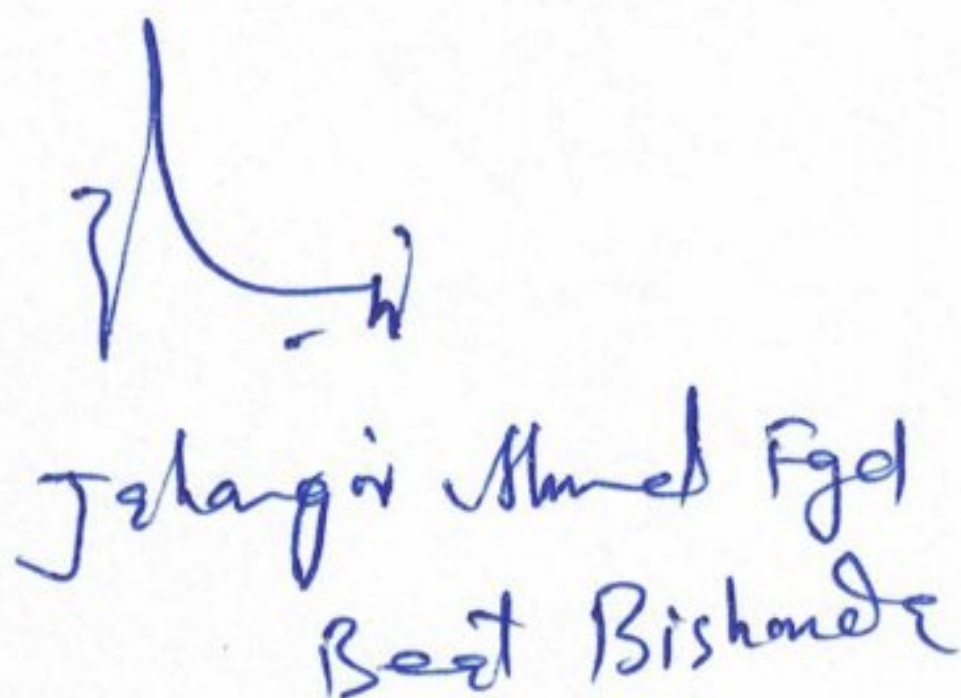 Jahangir Ahmed Fgd
Beat Bishonda